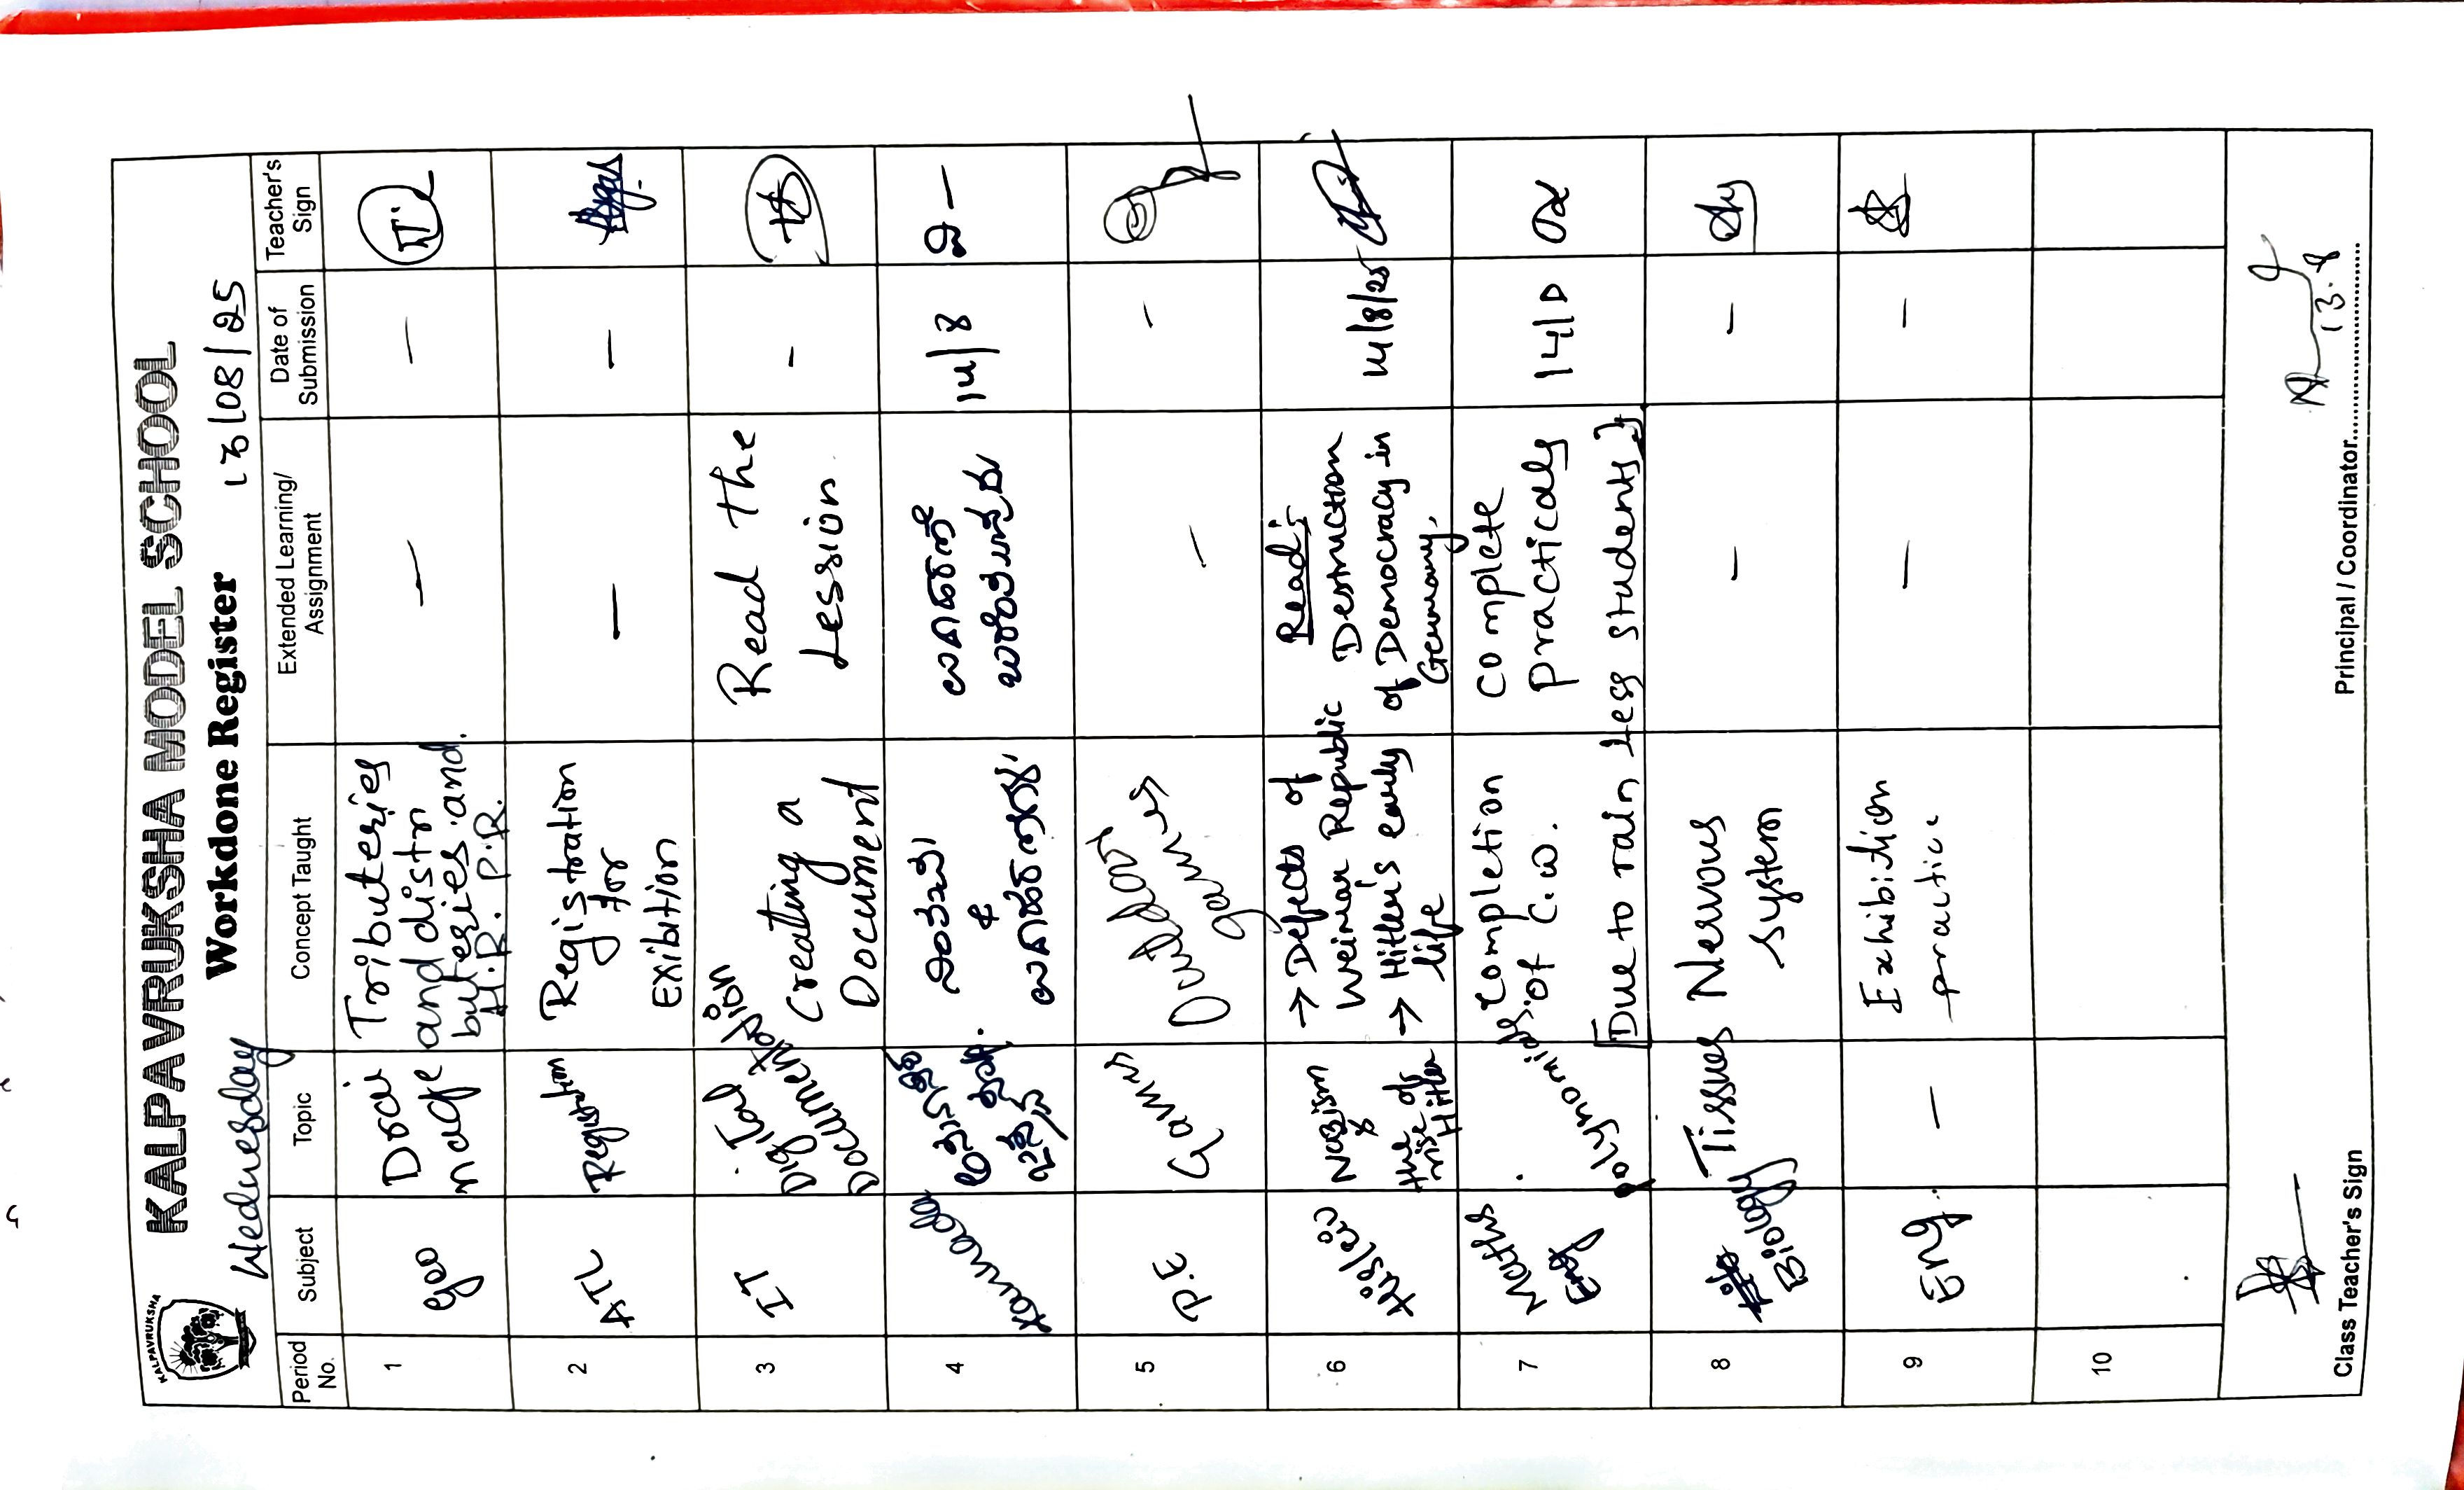 KALPAVRUKSHA
KALPAVRUKSHA MODEL SCHOOL
Workdone Register
Wednesday
13/08/25
Period No.
Subject
Topic
Concept Taught
Extended Learning/ Assignment
Date of Submission
Teacher's Sign
1
geo
Drai
nage
Tributeries
and distri
buteries and.
H.R. P.R.
—
—
2
ATL
Registration
Registration
for
Exibition
—
—
3
IT
Digital
Documentation
Creating a
Document
Read the
Lession
-
4
Kannada
&
14/8
5
P.E
Games
Outdoor
games
—
-
6
History
Nazism
&
the rise of
Hitler
→ Defects of
Weimar Republic
→ Hitler's early
life
Read:
Destruction
of Democracy in
Germany.
14/8/25
7
Maths
Polynomials.
Completion
of C.W.
[Due to rain less students]
complete
practicals
8
Biology
Tissues
Nervous
system
—
—
9
Eng.
—
Exhibition
practice
—
—
10
13.8
Class Teacher's Sign
Principal / Coordinator